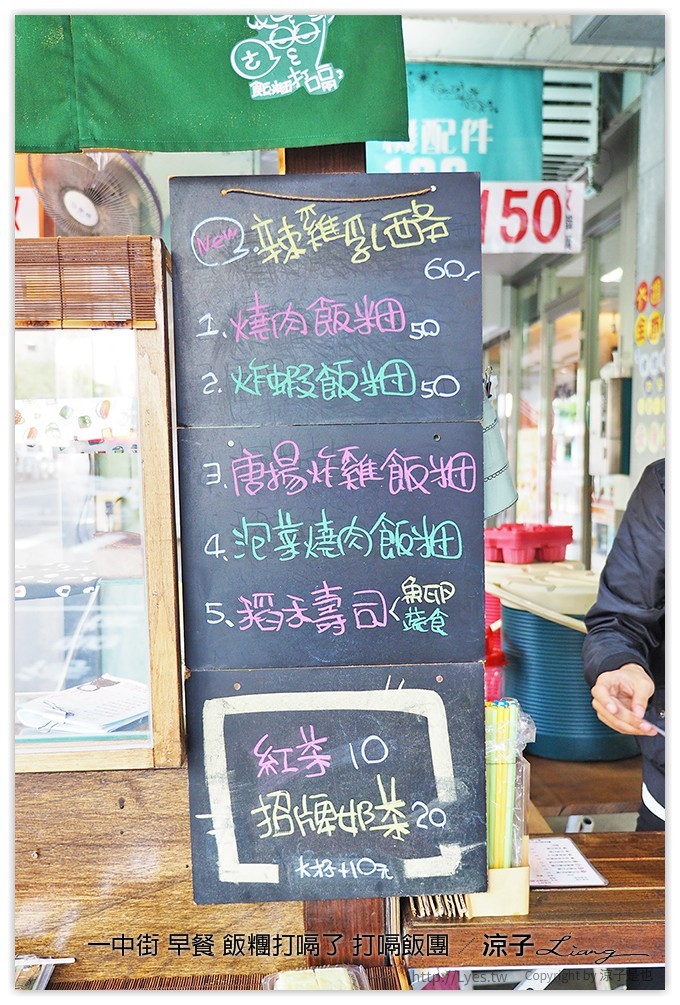 飯糰打嗝
機配件
150
New
辣雞乳酪
60
1.燒肉飯糰50
2.炸蝦飯糰50
3.唐揚炸雞飯糰
4.泡菜燒肉飯糰
5.稻禾壽司<魚卵
蔬食
紅茶10
招牌奶茶20
大杯+10元
一中街 早餐 飯糰打嗝了 打嗝飯團 / 涼子 Liang
http://Lyes.tw Copyright by 涼子是也